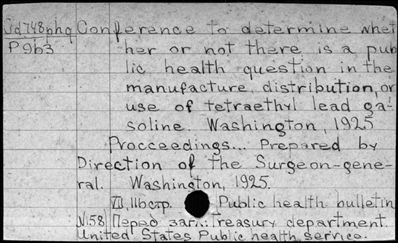 Jd748phq Conference to determine whet
P9b3 her or not there is a pub
lic health question in the
manufacture, distribution, or
use of tetraethyl lead ga-
soline. Washington, 1925
Procceedings... Prepared by
Direction of the Surgeon-gene-
ral. Washington, 1925.
VII, 116стр. Public health bulletin
N:158] Перед загл: Treasury department.
United States Public health service.